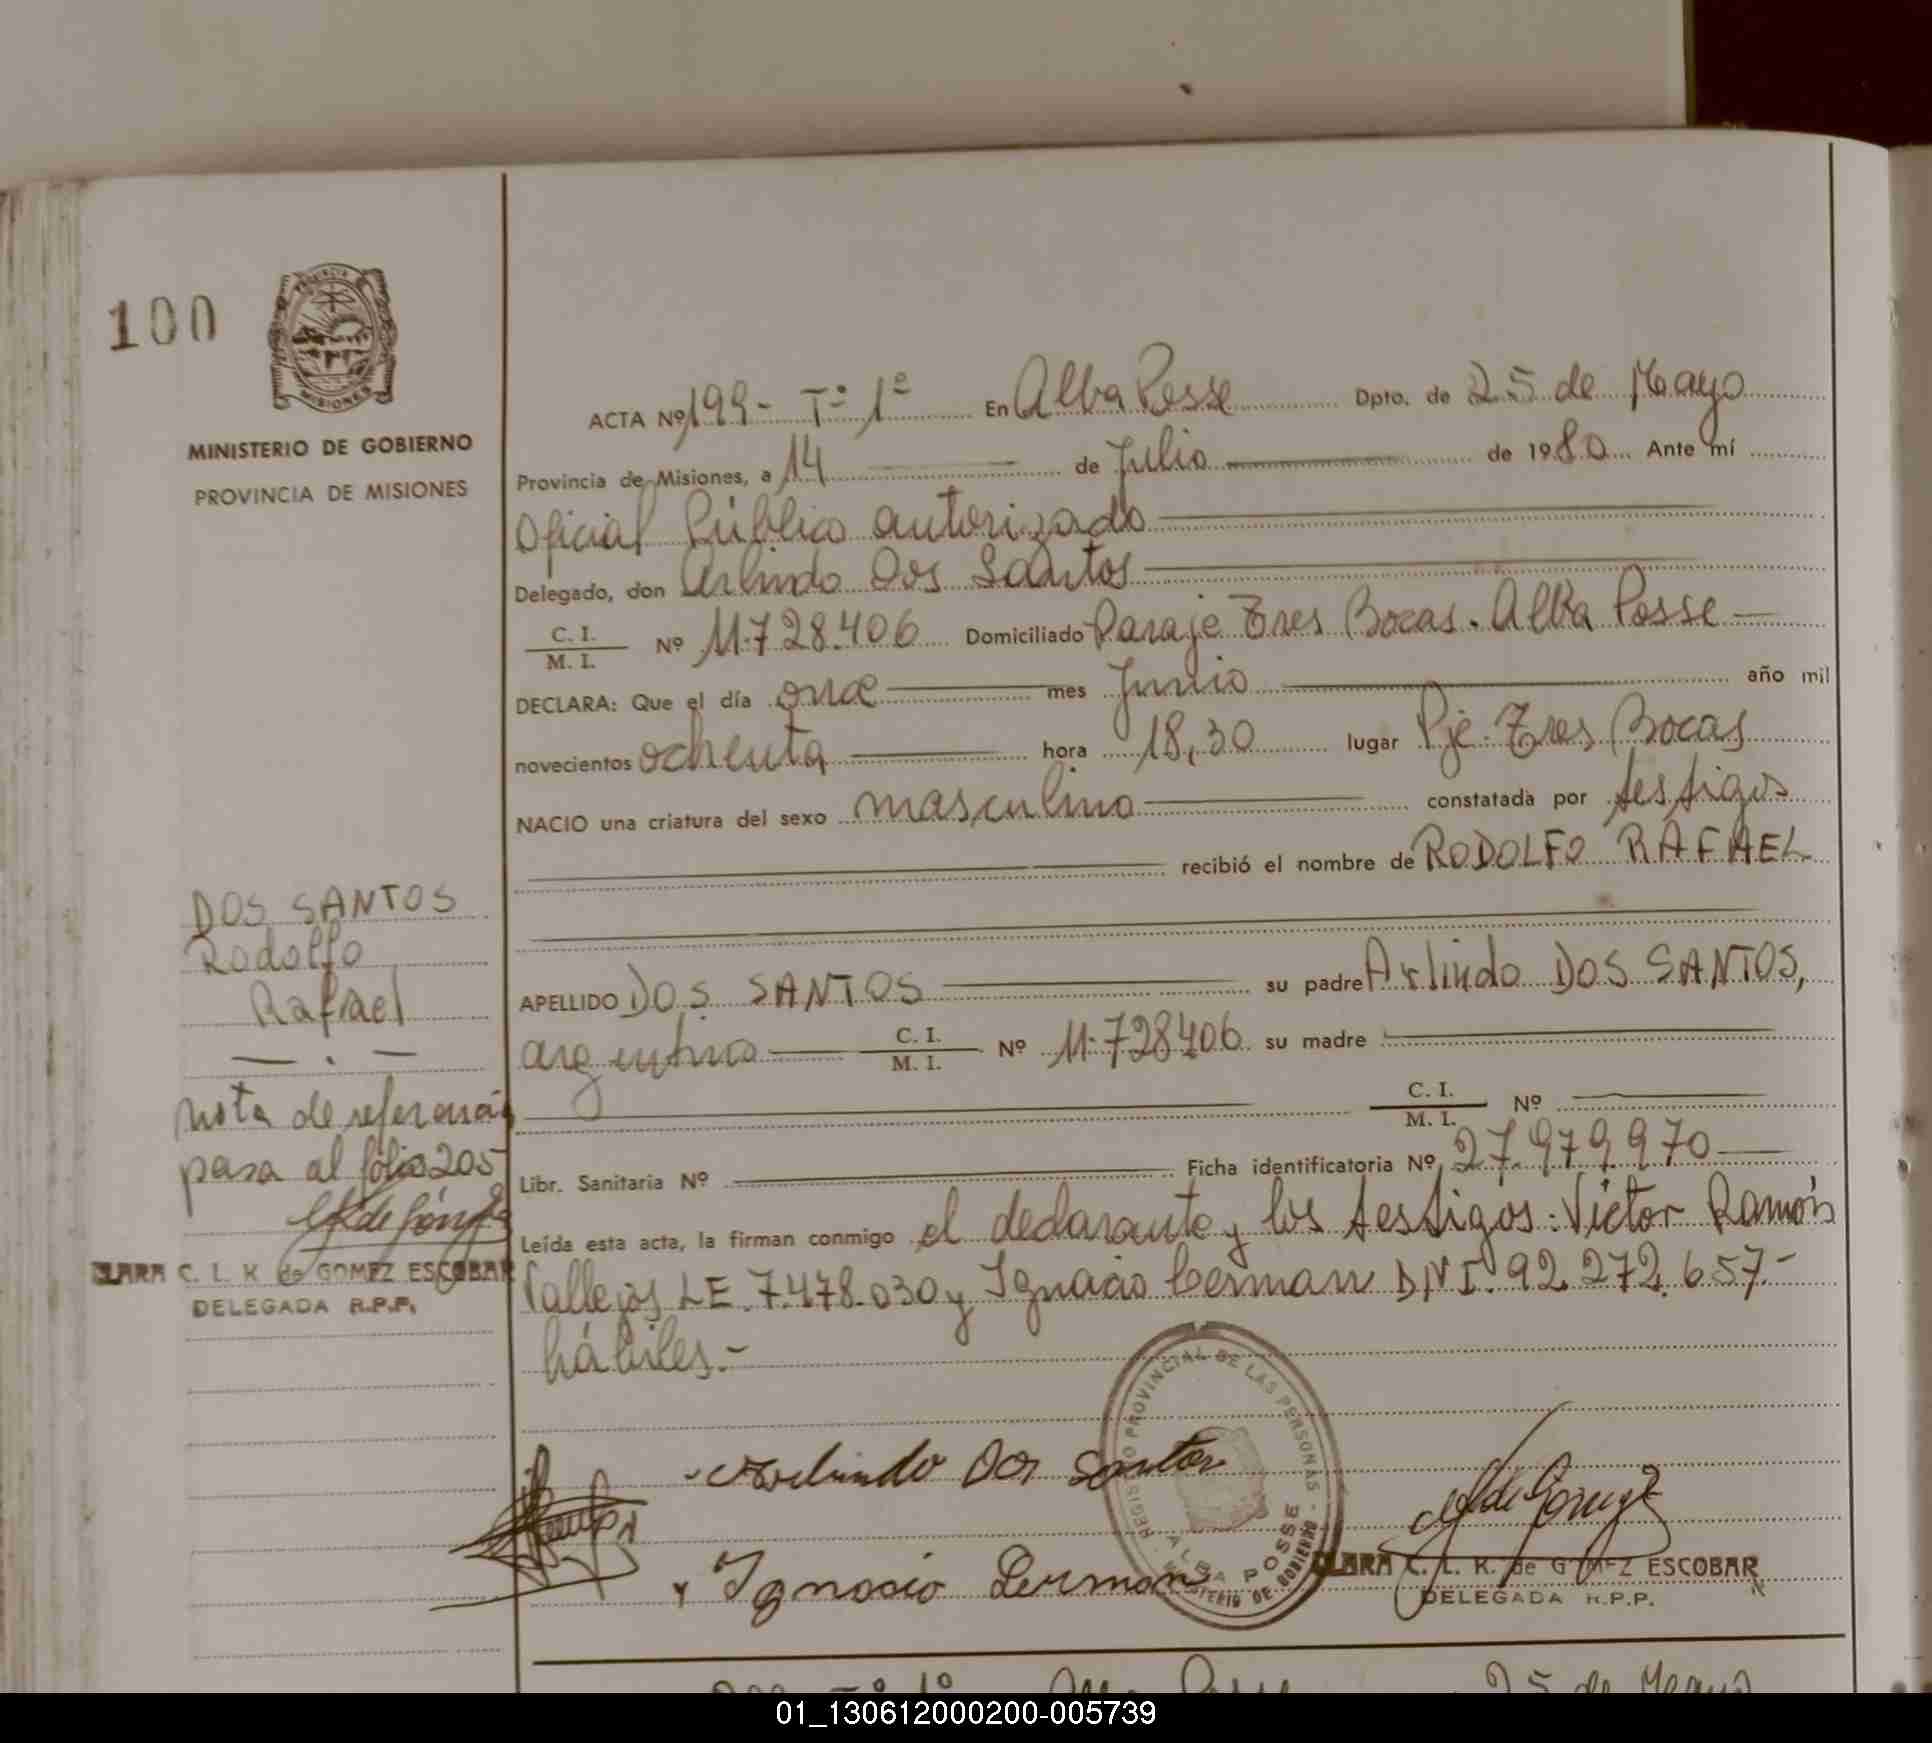 100
PROVINCIA
MISIONES
MINISTERIO DE GOBIERNO
PROVINCIA DE MISIONES
ACTA Nº 199- Tº 1º En Alba Posse Dpto. de 25 de Mayo
Provincia de Misiones, a 14 de Julio de 1980 Ante mí
Oficial Público autorizado
Delegado, don Arlindo Dos Santos
C. I.
M. I. Nº 11.728.406 Domiciliado Paraje Tres Bocas. Alba Posse
DECLARA: Que el día once mes Junio año mil
novecientos ochenta hora 18,30 lugar Pje. Tres Bocas
NACIO una criatura del sexo masculino constatada por testigos
recibió el nombre de RODOLFO RAFAEL
APELLIDO DOS SANTOS su padre Arlindo DOS SANTOS,
argentino C. I.
M. I. Nº 11.728406 su madre
C. I.
M. I. Nº
Libr. Sanitaria Nº Ficha identificatoria Nº 27.979.970
Leída esta acta, la firman conmigo el declarante y los testigos: Víctor Ramón
Vallejos LE. 7.478.030 y Ignacio German D.N.I. 92.272.657.-
hábiles.-
DOS SANTOS
Rodolfo
Rafael
nota de referencia
pasa al folio 205
CLARA C. L. K. de GOMEZ ESCOBAR
DELEGADA R.P.P.
Arlindo Dos Santos
y Ignacio German
REGISTRO PROVINCIAL DE LAS PERSONAS - MINISTERIO DE GOBIERNO
ALBA POSSE
CLARA C. L. K. de GOMEZ ESCOBAR
DELEGADA R.P.P.
01_130612000200-005739